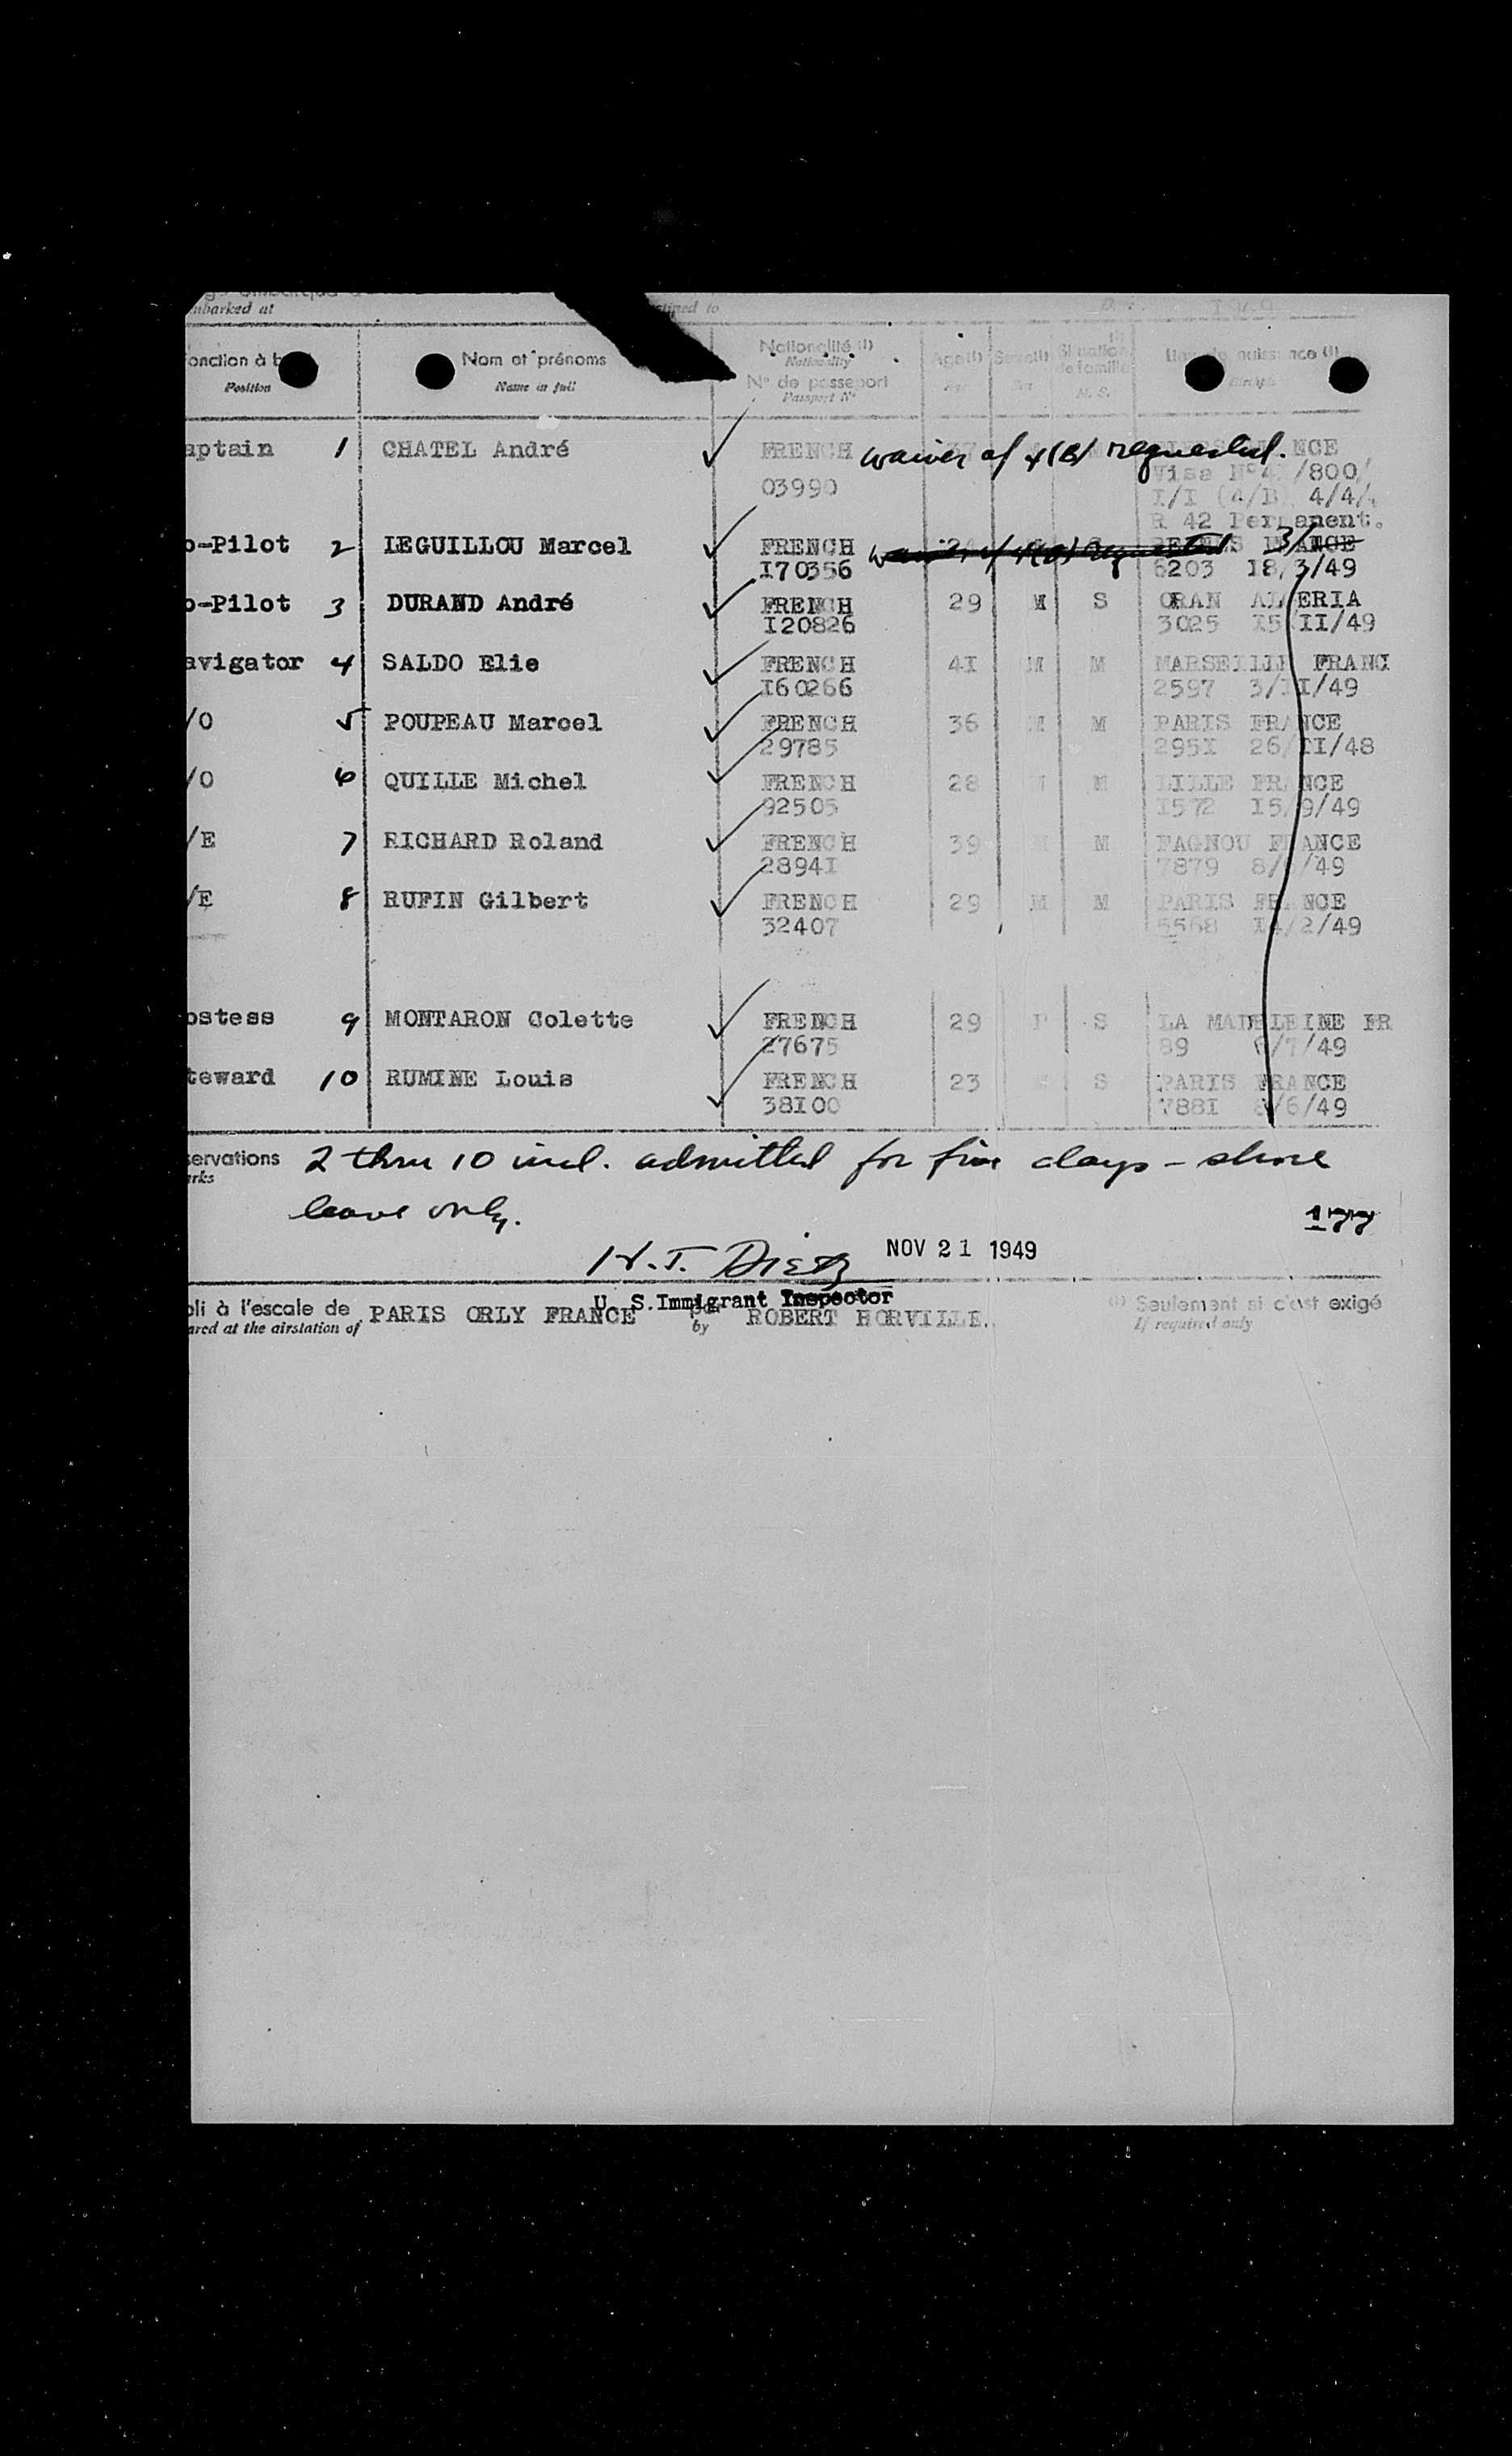 mbarked at
Nom et prénoms
Nationalité (1)
Age (1) Sexe (1) Situation (1)
de famille
onction à b
Nationality
Position
Name in full
N° de passeport
Passport N°
M. S.
aptain 1 CHATEL André FRENCH waiver of 4(B) requested. NCE
03990 Visa N° /800/
I/I (4/B 4/4/
R 42 Permanent.
o-Pilot 2 LEGUILLOU Marcel FRENCH FRANCE
I70356 6203 I8/3/49
o-Pilot 3 DURAND André FRENCH 29 M S ORAN ALGERIA
I20826 3025 I5/II/49
avigator 4 SALDO Elie FRENCH 4I M M MARSEILLE FRANC
I60266 2597 3/II/49
/O 5 POUPEAU Marcel FRENCH 36 M M PARIS FRANCE
29785 295I 26/II/48
/O 6 QUILLE Michel FRENCH 28 M M LILLE FRANCE
92505 I572 I5/9/49
/E 7 RICHARD Roland FRENCH 39 M M FAGNOU FRANCE
2894I 7879 8/ /49
/E 8 RUFIN Gilbert FRENCH 29 M M PARIS FRANCE
32407 5568 I4/2/49
ostess 9 MONTARON Colette FRENCH 29 F S LA MADELEINE FR
27675 89 6/7/49
teward 10 RUMINE Louis FRENCH 23 S PARIS FRANCE
38I00 788I 8/6/49
servations 2 thru 10 incl. admitted for five days - shore
rks
leave only.
177
H.T. Dietz NOV 21 1949
U. S. Immigrant Inspector
bli à l'escale de PARIS ORLY FRANCE par ROBERT HORVILLE. (1) Seulement si c'est exigé
ared at the airstation of by If required only